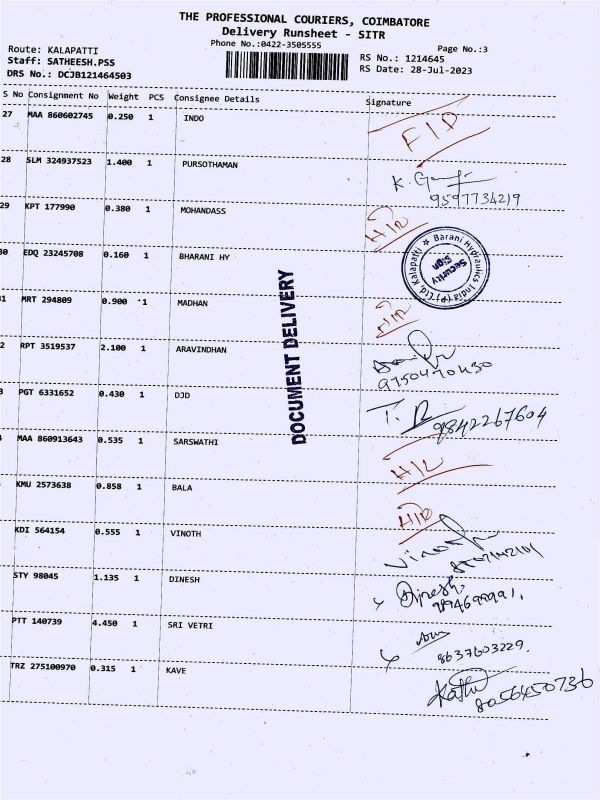 THE PROFESSIONAL COURIERS, COIMBATORE
Delivery Runsheet - SITR
Phone No.:0422-3505555
Page No.:3
Route: KALAPATTI
Staff: SATHEESH.PSS
DRS No.: DCJB121464503
RS No.: 1214645
RS Date: 28-Jul-2023
S No Consignment No Weight PCS Consignee Details Signature
27 MAA 860602745 0.250 1 INDO
28 SLM 324937523 1.400 1 PURSOTHAMAN
9597734219
29 KPT 177990 0.380 1 MOHANDASS
30 EDQ 23245708 0.160 1 BHARANI HY
Barani Hydraulics India (P) Ltd, Kalapatti
Security Sign
1 MRT 294809 0.900 1 MADHAN
2 RPT 3519537 2.100 1 ARAVINDHAN
9750470430
3 PGT 6331652 0.430 1 DJD
9842267604
MAA 860913643 0.535 1 SARSWATHI
KMU 2573638 0.858 1 BALA
KDI 564154 0.555 1 VINOTH
STY 98045 1.135 1 DINESH
Dinesh
PTT 140739 4.450 1 SRI VETRI
8637603229.
TRZ 275100970 0.315 1 KAVE
8056450736
DOCUMENT DELIVERY